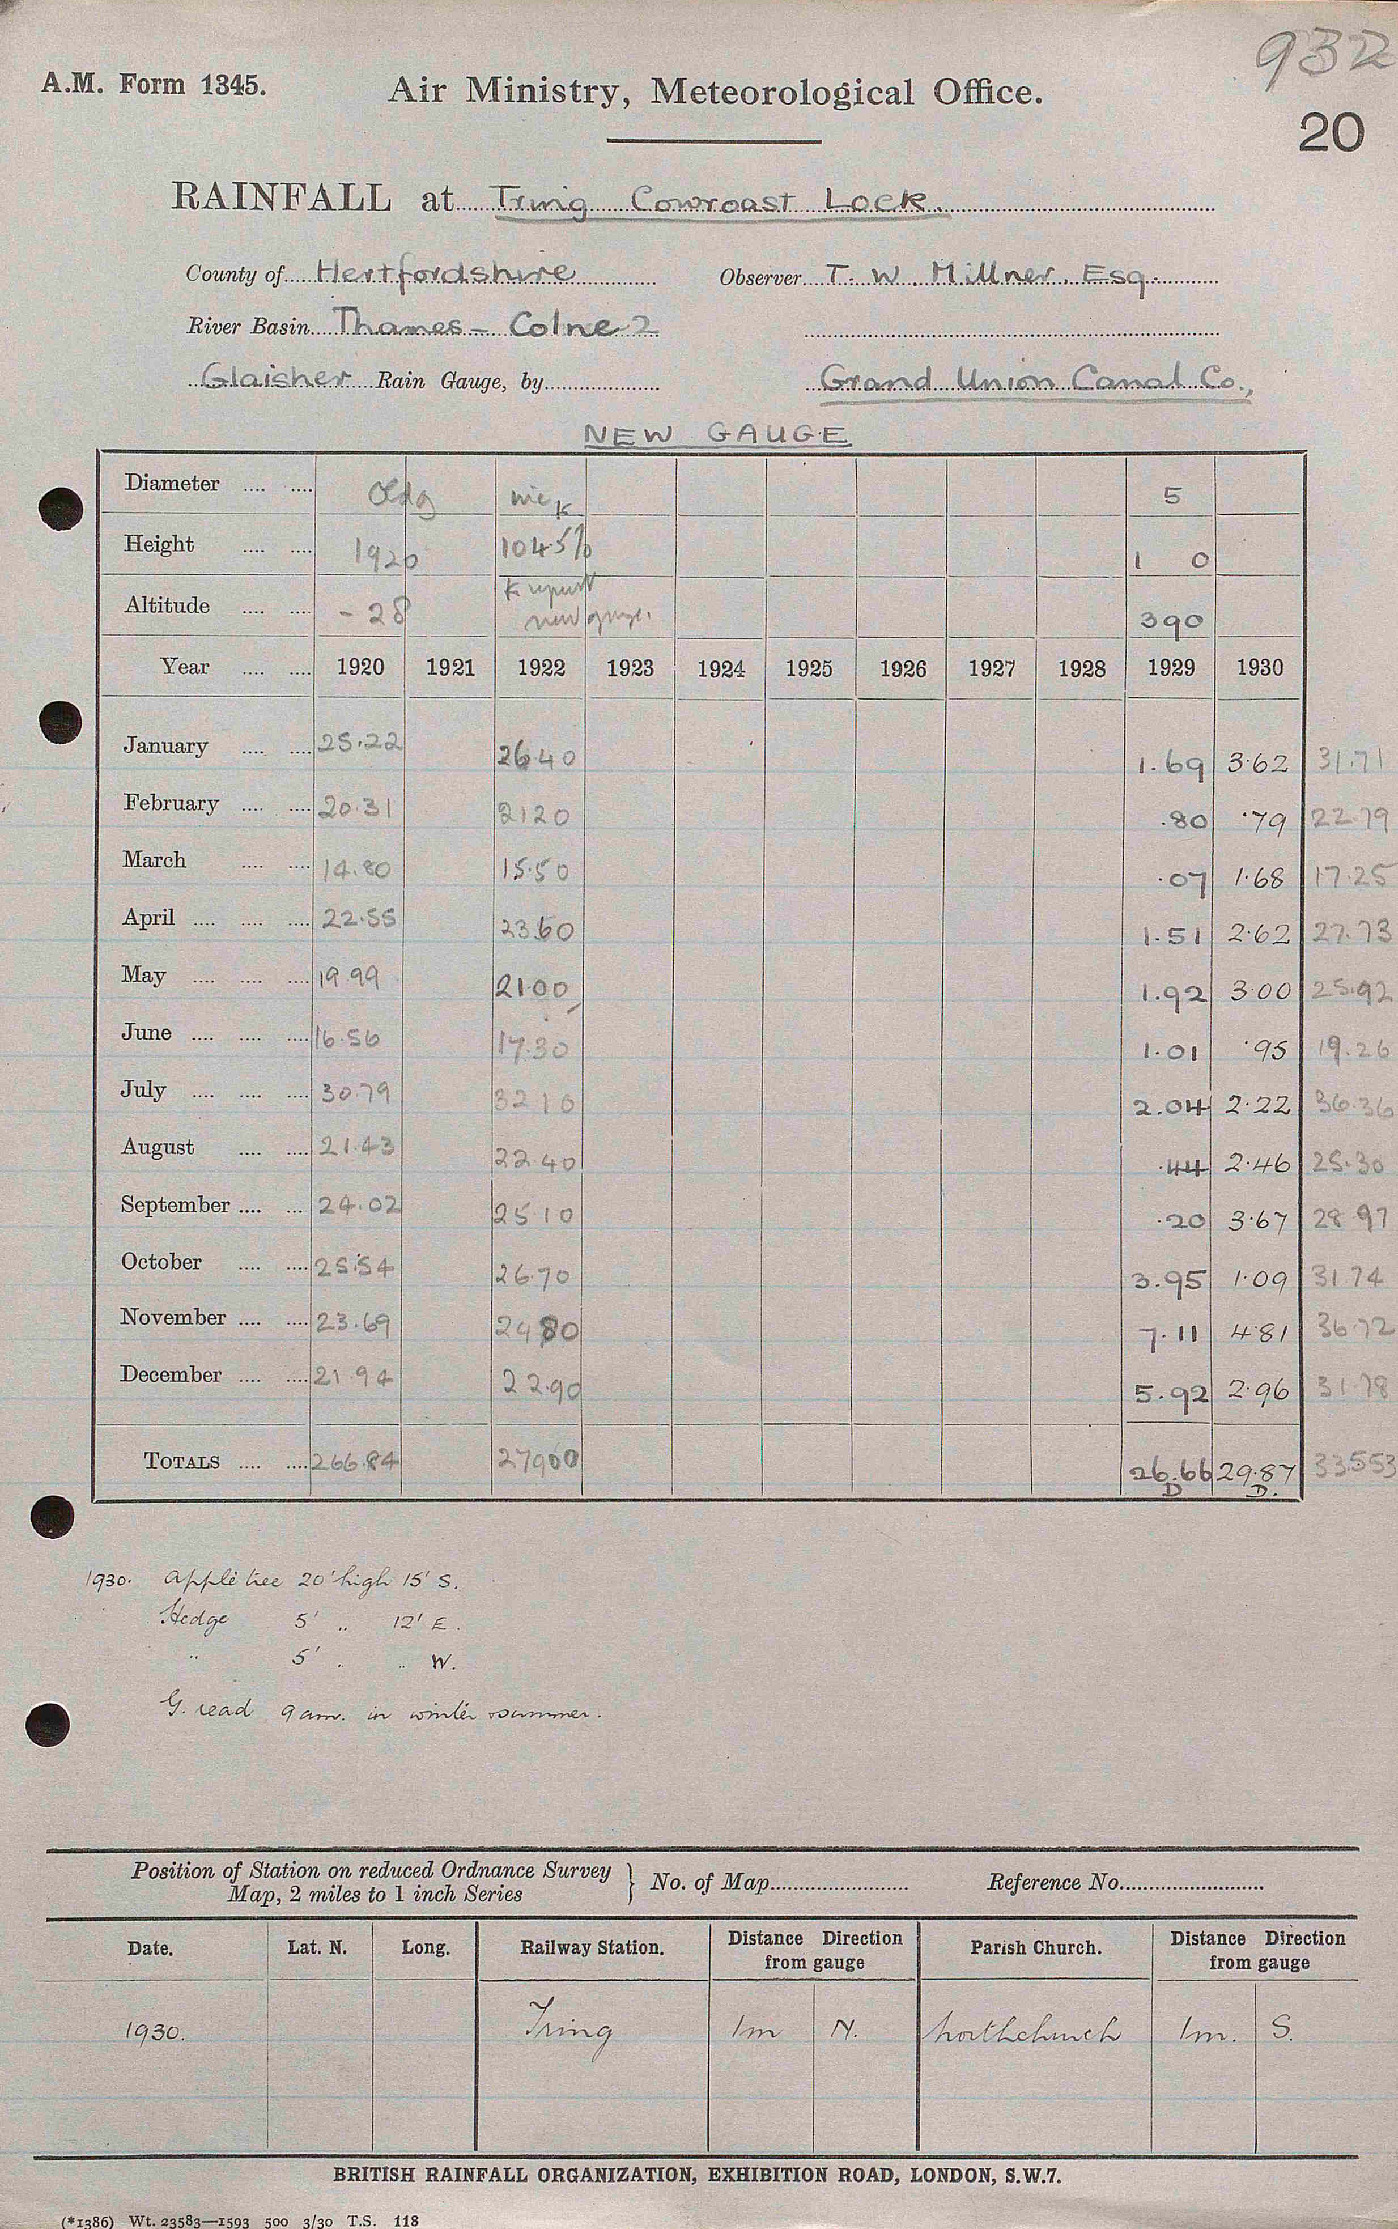 932
A.M. Form 1345. Air Ministry, Meteorological Office.
20
RAINFALL at Tring Cowroast Lock.
County of Hertfordshire Observer T. W. Millner Esq.
River Basin Thames - Colne 2
Glaisher Rain Gauge, by Grand Union Canal Co.,
NEW GAUGE
Diameter .... .... Oldg 5
Height .... .... 1920 104.5% 1 0
Altitude .... .... - 28 new gauge. 390
Year .... .... 1920 1921 1922 1923 1924 1925 1926 1927 1928 1929 1930
January .... .... 25.22 26.40 1.69 3.62 31.71
February .... .... 20.31 21 20 .80 .79 22.79
March .... .... 14.80 15.50 .07 1.68 17.25
April .... .... .... 22.55 23.60 1.51 2.62 27.73
May .... .... .... 19.99 21.00 1.92 3.00 25.92
June .... .... .... 16.56 17.30 1.01 .95 19.26
July .... .... .... 30.79 32 10 2.04 2.22 36.36
August .... .... 21.43 22.40 .44 2.46 25.30
September .... ... 24.02 25 10 .20 3.67 28.97
October .... .... 25.54 26.70 3.95 1.09 31.74
November .... .... 23.69 24 80 7.11 4.81 36.72
December .... .... 21.94 22.90 5.92 2.96 31.78
TOTALS .... .... 266.84 27900 26.66 29.87 33553
D D.
1930. Apple tree 20' high 15' S.
Hedge 5' ,, 12' E.
,, 5' . ,, W.
G. read 9 am. in winter & summer.
Position of Station on reduced Ordnance Survey
Map, 2 miles to 1 inch Series } No. of Map Reference No.
Date. Lat. N. Long. Railway Station. Distance Direction from gauge Parish Church. Distance Direction from gauge
1930. Tring 1m N. Northchurch 1m. S.
BRITISH RAINFALL ORGANIZATION, EXHIBITION ROAD, LONDON, S.W.7.
(*1386) Wt. 23583—1593 500 3/30 T.S. 118